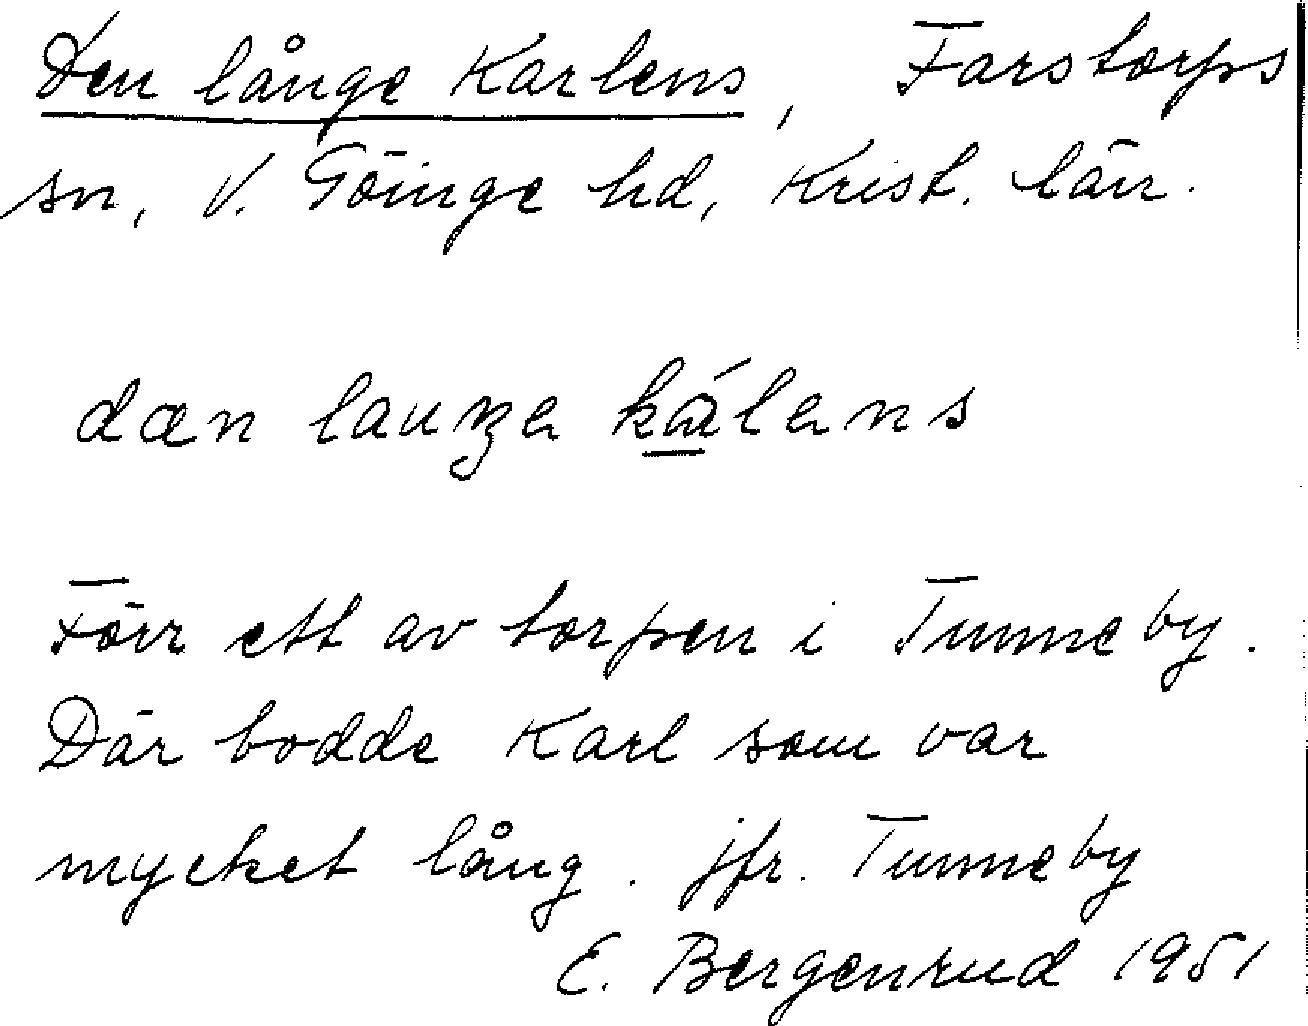 Den långe Karlens, Farstorps
sn, V. Göinge hd, Krist. län.
dæn lauŋa kálans
Förr ett av torpen i Tunneby.
Där bodde Karl som var
mycket lång. jfr. Tunneby
E. Bergenrud 1951